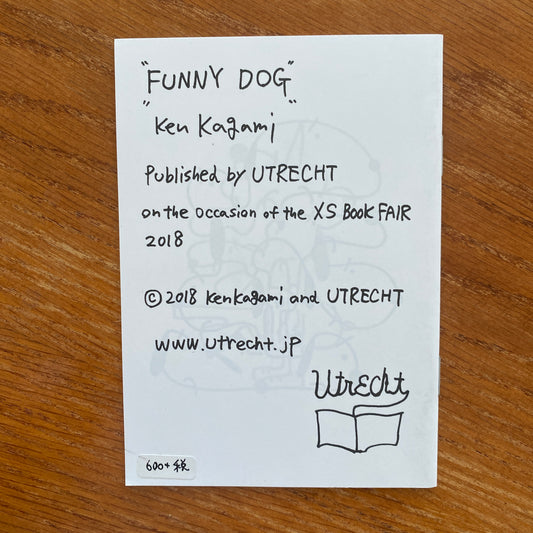 "FUNNY DOG"
Ken Kagami
Published by UTRECHT
on the occasion of the XS BOOK FAIR
2018
© 2018 kenkagami and UTRECHT
www.utrecht.jp
Utrecht
600+税